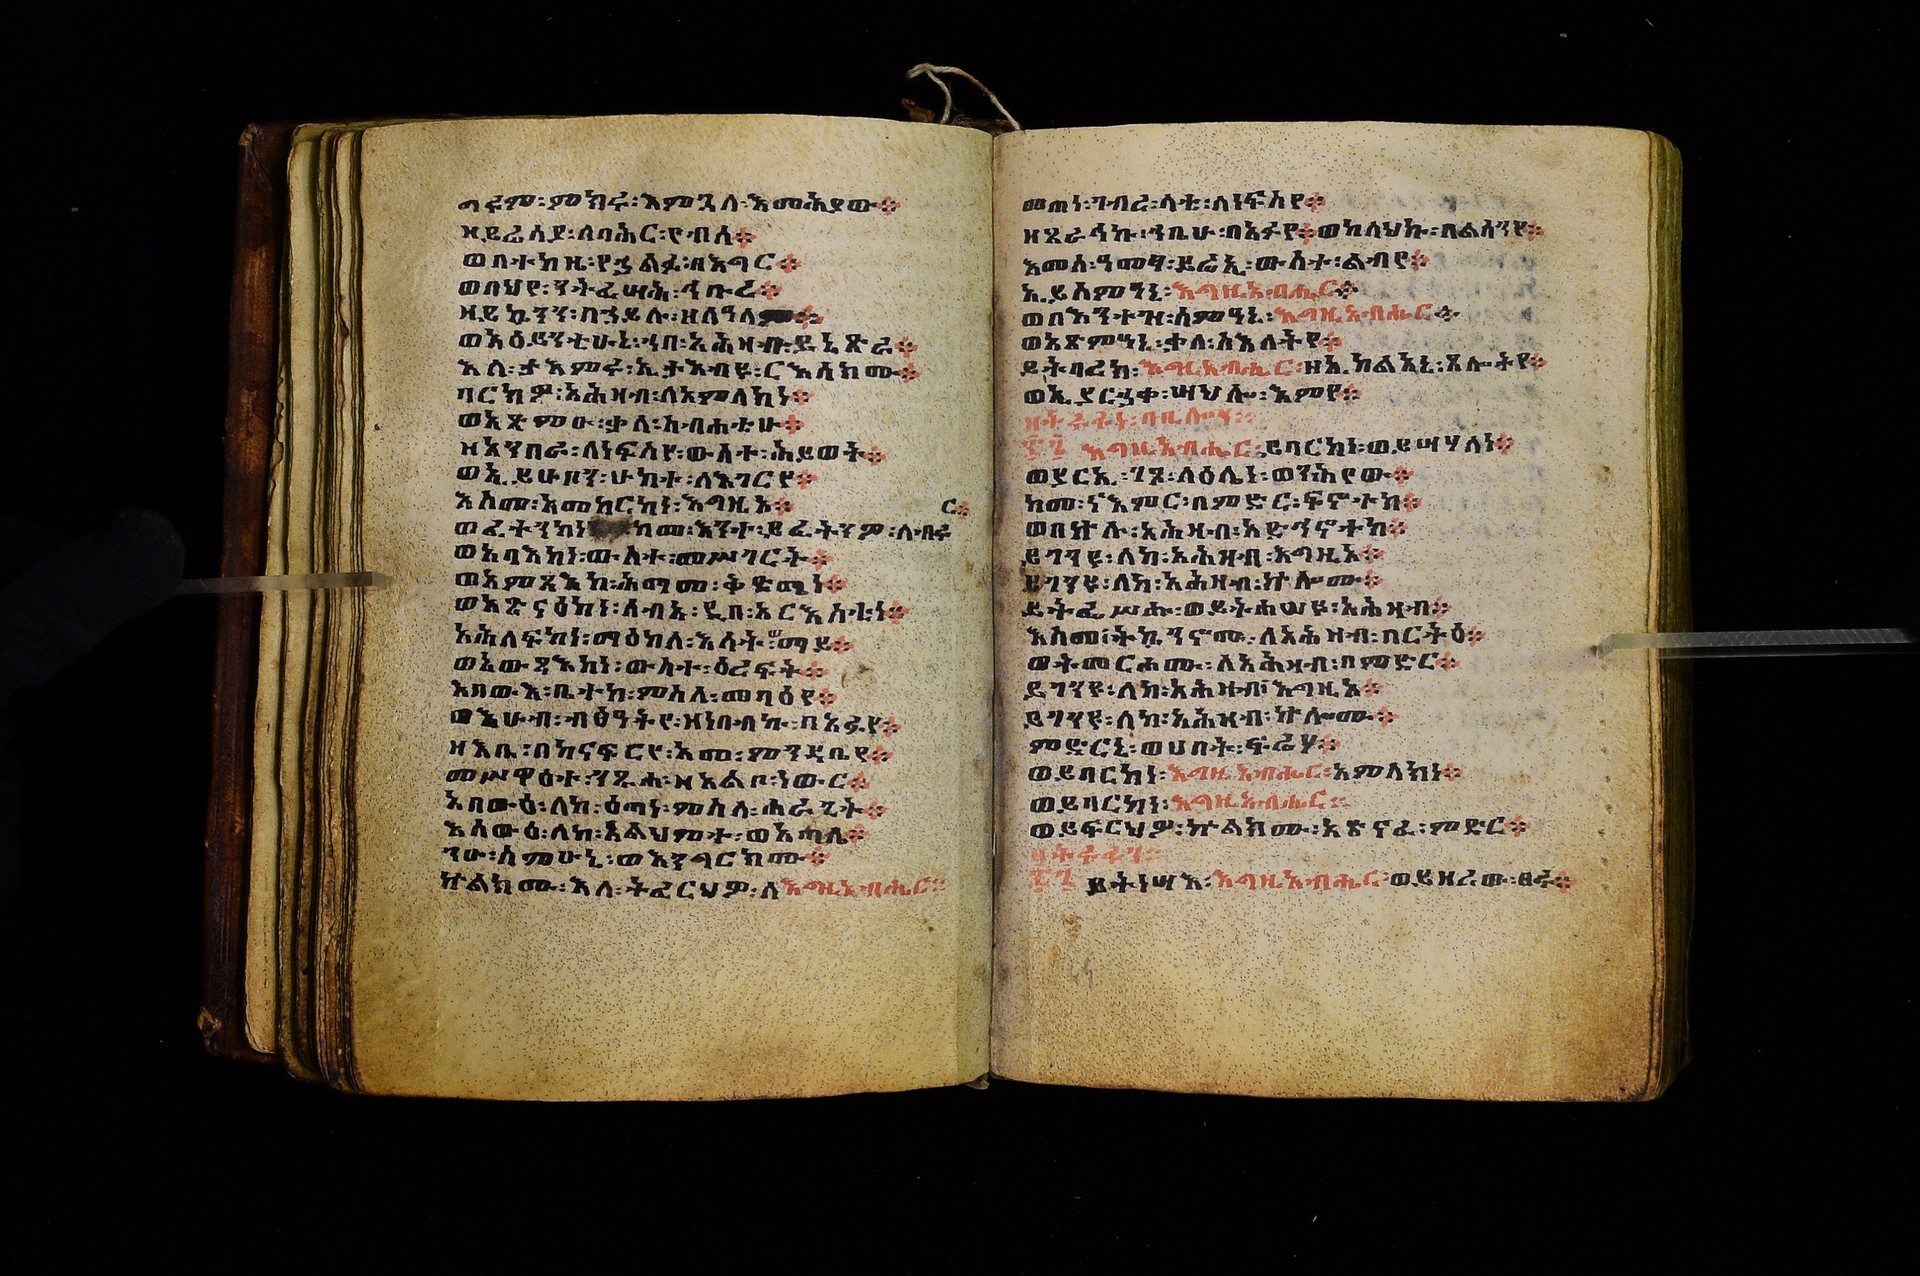 ግሩም፡ምክሩ፡እምጓለ፡እመሕያው፨
ዘይሬስያ፡ለባሕር፡የብሰ፨
ወበተከዚ፡የኃልፉ፡በእግር፨
ወበህየ፡ንትፌሣሕ፡ኅቡረ፨
ዘይኴንን፡በኃይሉ፡ዘለዓለም፨
ወአዕይንቲሁኒ፡ኀበ፡አሕዛብ፡ይኔጽራ፨
እለ፡ታአምሩ፡ኢታእብዩ፡ርእሰክሙ፨
ባርክዎ፡አሕዛብ፡ለአምላክነ፨
ወአጽምዑ፡ቃለ፡ስብሐቲሁ፨
ዘአንበራ፡ለነፍስየ፡ውስተ፡ሕይወት፨
ወኢይሁቦን፡ሁከተ፡ለእገርየ፨
እስመ፡አመከርከነ፡እግዚኦ፨ ር፨
ወፈተንከነ ከመ፡እንተ፡ይፈትንዎ፡ለብሩ
ወአባእከነ፡ውስተ፡መሥገርት፨
ወአምጻእከ፡ሕማመ፡ቅድሜነ፨
ወአጽናዕከነ፡ሰብአ፡ዲበ፡አርእስቲነ፨
አሕለፍከነ፡ማዕከለ፡እሳት፡ወማይ፨
ወአውጻእከነ፡ውስተ፡ዕረፍት፨
እበውእ፡ቤተከ፡ምስለ፡መባዕየ፨
ወእሁብ፡ብፅዓትየ፡ዘነበብኩ፡በአፉየ፨
ዘእቤ፡በከናፍርየ፡አመ፡ምንዳቤየ፨
መሥዋዕተ፡ንጹሐ፡ዘአልቦ፡ነውር፨
እበውዕ፡ለከ፡ዕጣነ፡ምስለ፡ሐራጊት፨
እሰውዕ፡ለከ፡እልህምተ፡ወአጣሌ፨
ንዑ፡ስምዑኒ፡ወእንግርክሙ፨
ኵልክሙ፡እለ፡ትፈርህዎ፡ለእግዚአብሔር፨
መጠነ፡ገብረ፡ላቲ፡ለነፍስየ፨
ዘጸራኅኩ፡ኀቤሁ፡በአፉየ፨ወከላህኩ፡በልሳንየ፨
እመሰ፡ዓመፃ፡ይሬኢ፡ውስተ፡ልብየ፨
ኢይሰምዓኒ፡እግዚአብሔር፨
ወበእንተዝ፡ሰምዓኒ፡እግዚአብሔር፨
ወአጽምዓኒ፡ቃለ፡ስእለትየ፨
ይትባረክ፡እግዚአብሔር፡ዘኢከልአኒ፡ጸሎትየ፨
ወኢያርኃቀ፡ሣህሎ፡እምየ፨
፷፮ እግዚአብሔር፡ይባርከነ፡ወይሣሃለነ፨
ወያርኢ፡ገጾ፡ላዕሌነ፡ወንሕየው፨
ከመ፡ናእምር፡በምድር፡ፍኖተከ፨
ወበኵሉ፡አሕዛብ፡አድኅኖተከ፨
ይገንዩ፡ለከ፡አሕዛብ፡እግዚኦ፨
ይገንዩ፡ለከ፡አሕዛብ፡ኵሎሙ፨
ይትፌሥሑ፡ወይትሐሠዩ፡አሕዛብ፨
እስመ፡ትኴንኖሙ፡ለአሕዛብ፡በርትዕ፨
ወትመርሖሙ፡ለአሕዛብ፡በምድር፨
ይገንዩ፡ለከ፡አሕዛብ፡እግዚኦ፨
ይገንዩ፡ለከ፡አሕዛብ፡ኵሎሙ፨
ምድርኒ፡ወሀበት፡ፍሬሃ፨
ወይባርከነ፡እግዚአብሔር፡አምላክነ፨
ወይባርከነ፡እግዚአብሔር፨
ወይፍርህዎ፡ኵልክሙ፡አጽናፈ፡ምድር፨
፷፯ ይትነሣእ፡እግዚአብሔር፡ወይዘረው፡ፀሩ፨